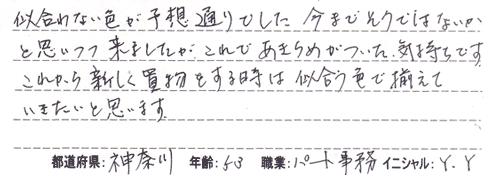 似合わない色が予想通りでした 今までそうではないか
と思いつつ来ましたが、これであきらめがついた気持ちです
これから新しく買物をする時は似合う色で揃えて
いきたいと思います。
都道府県：神奈川 年齢：53 職業：パート事務 イニシャル：Y.Y